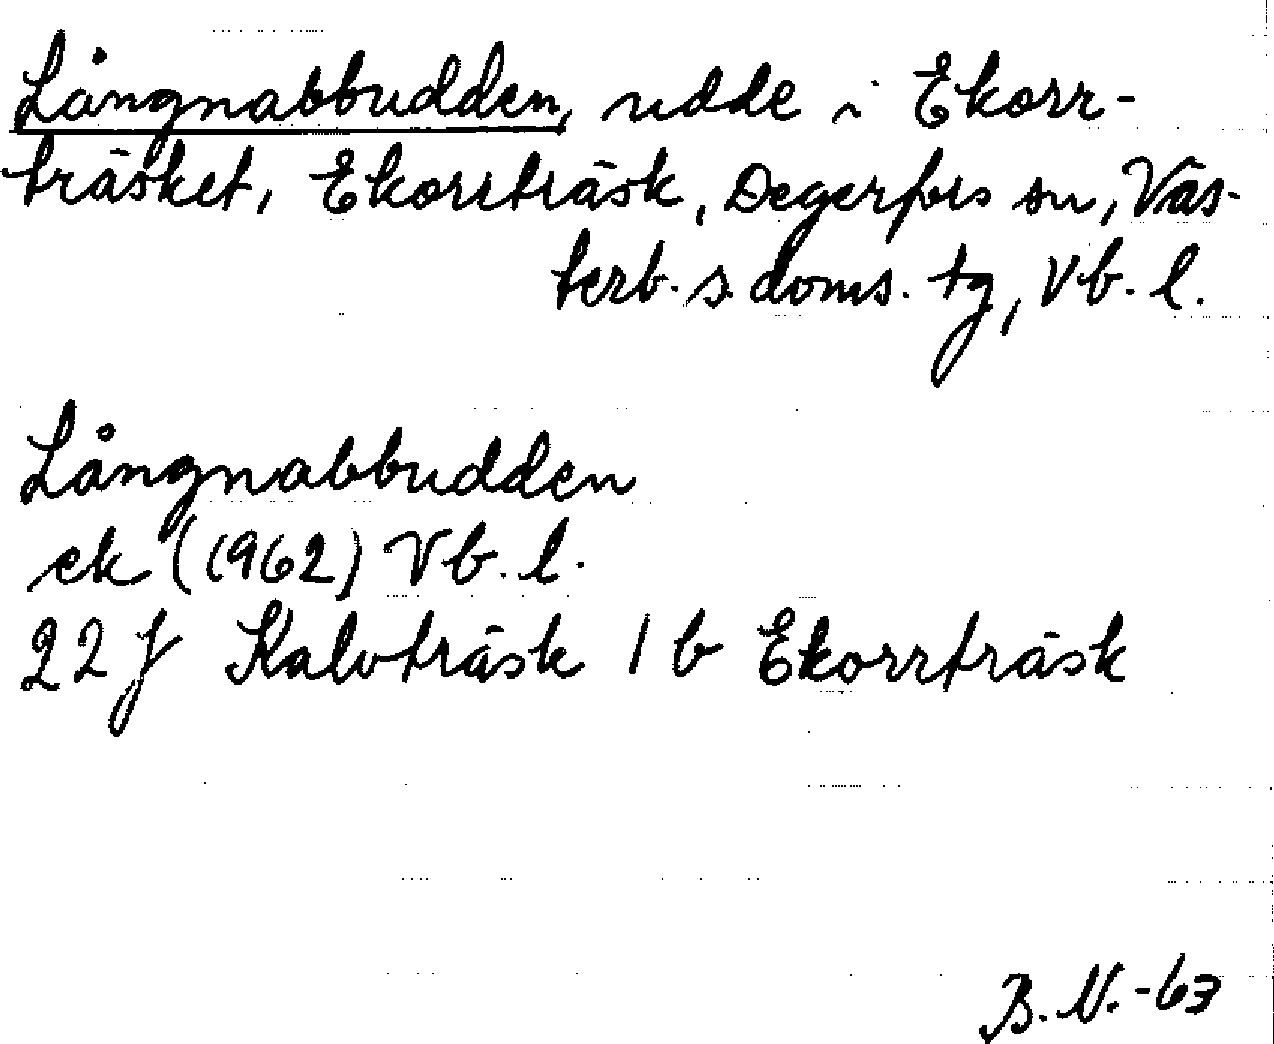 Långnabbudden, udde i Ekorr-
träsket, Ekorrträsk, Degerfors sn, Väs-
terb. s. doms. tg, Vb. l.
Långnabbudden
ek (1962) Vb. l.
22 J Kalvträsk 1 b Ekorrträsk
B. N. -63